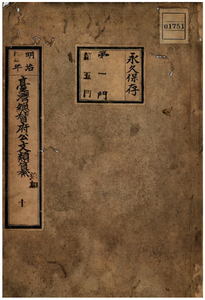 永久保存
第一門
01751
明治
年
臺灣總督府公文類纂
十